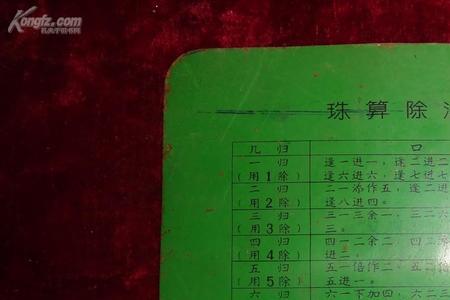 Kongfz.com
孔夫子旧书网
珠算除
几归 口
一归 逢一进一，逢二进二
(用1除) 逢六进六，逢七进七
二归 二一添作五，逢二进
(用2除) 逢八进四。
三归 三一三余一，三二六
(用3除) 三。
四归 四一二余二，四二
(用4除) 进二，
五归 五一倍作二，五二
(用5除) 五进一。
六归 六一下加四，六二